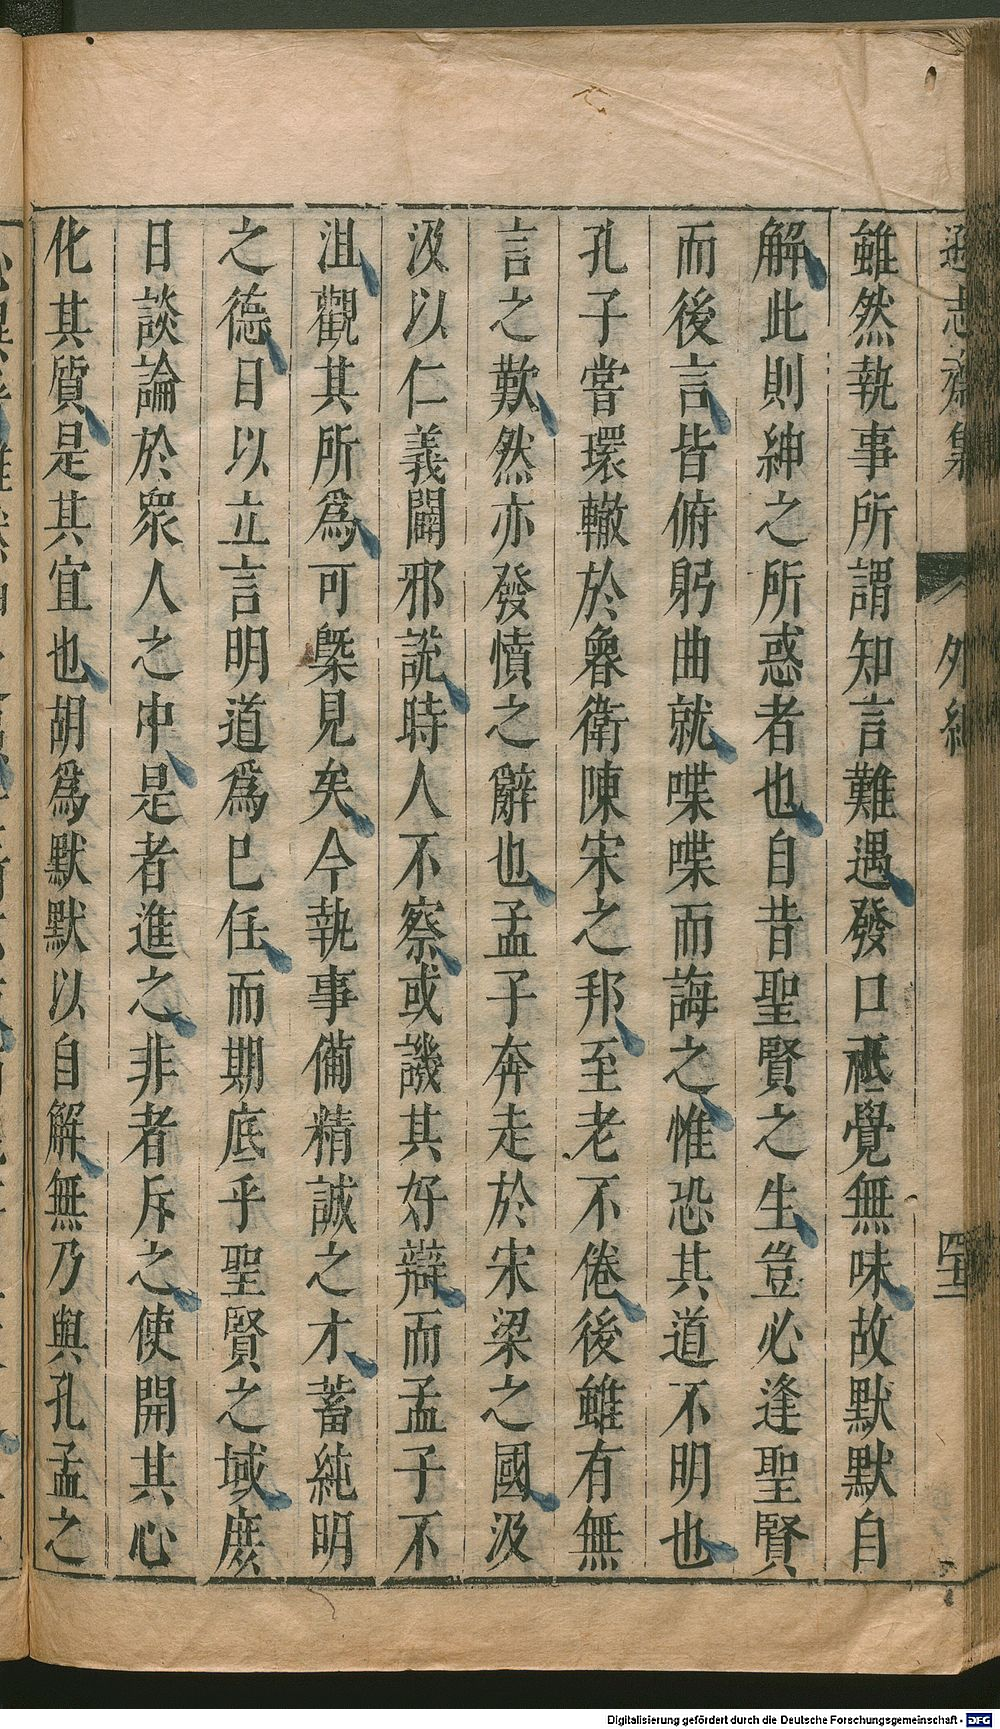 遜志齋集 外紀 四十五
雖然執事所謂知言難遇發口祗覺無味故默默自
解此則紳之所惑者也自昔聖賢之生豈必逢聖賢
而後言皆俯躬曲就喋喋而誨之惟恐其道不明也
孔子嘗環轍於魯衛陳宋之邦至老不倦後雖有無
言之歎然亦發憤之辭也孟子奔走於宋梁之國汲
汲以仁義闢邪說時人不察或譏其好辯而孟子不
沮觀其所爲可槩見矣今執事備精誠之才蓄純明
之德日以立言明道爲已任而期底乎聖賢之域庶
日談論於衆人之中是者進之非者斥之使開其心
化其質是其宜也胡爲默默以自解無乃與孔孟之
Digitalisierung gefördert durch die Deutsche Forschungsgemeinschaft - DFG